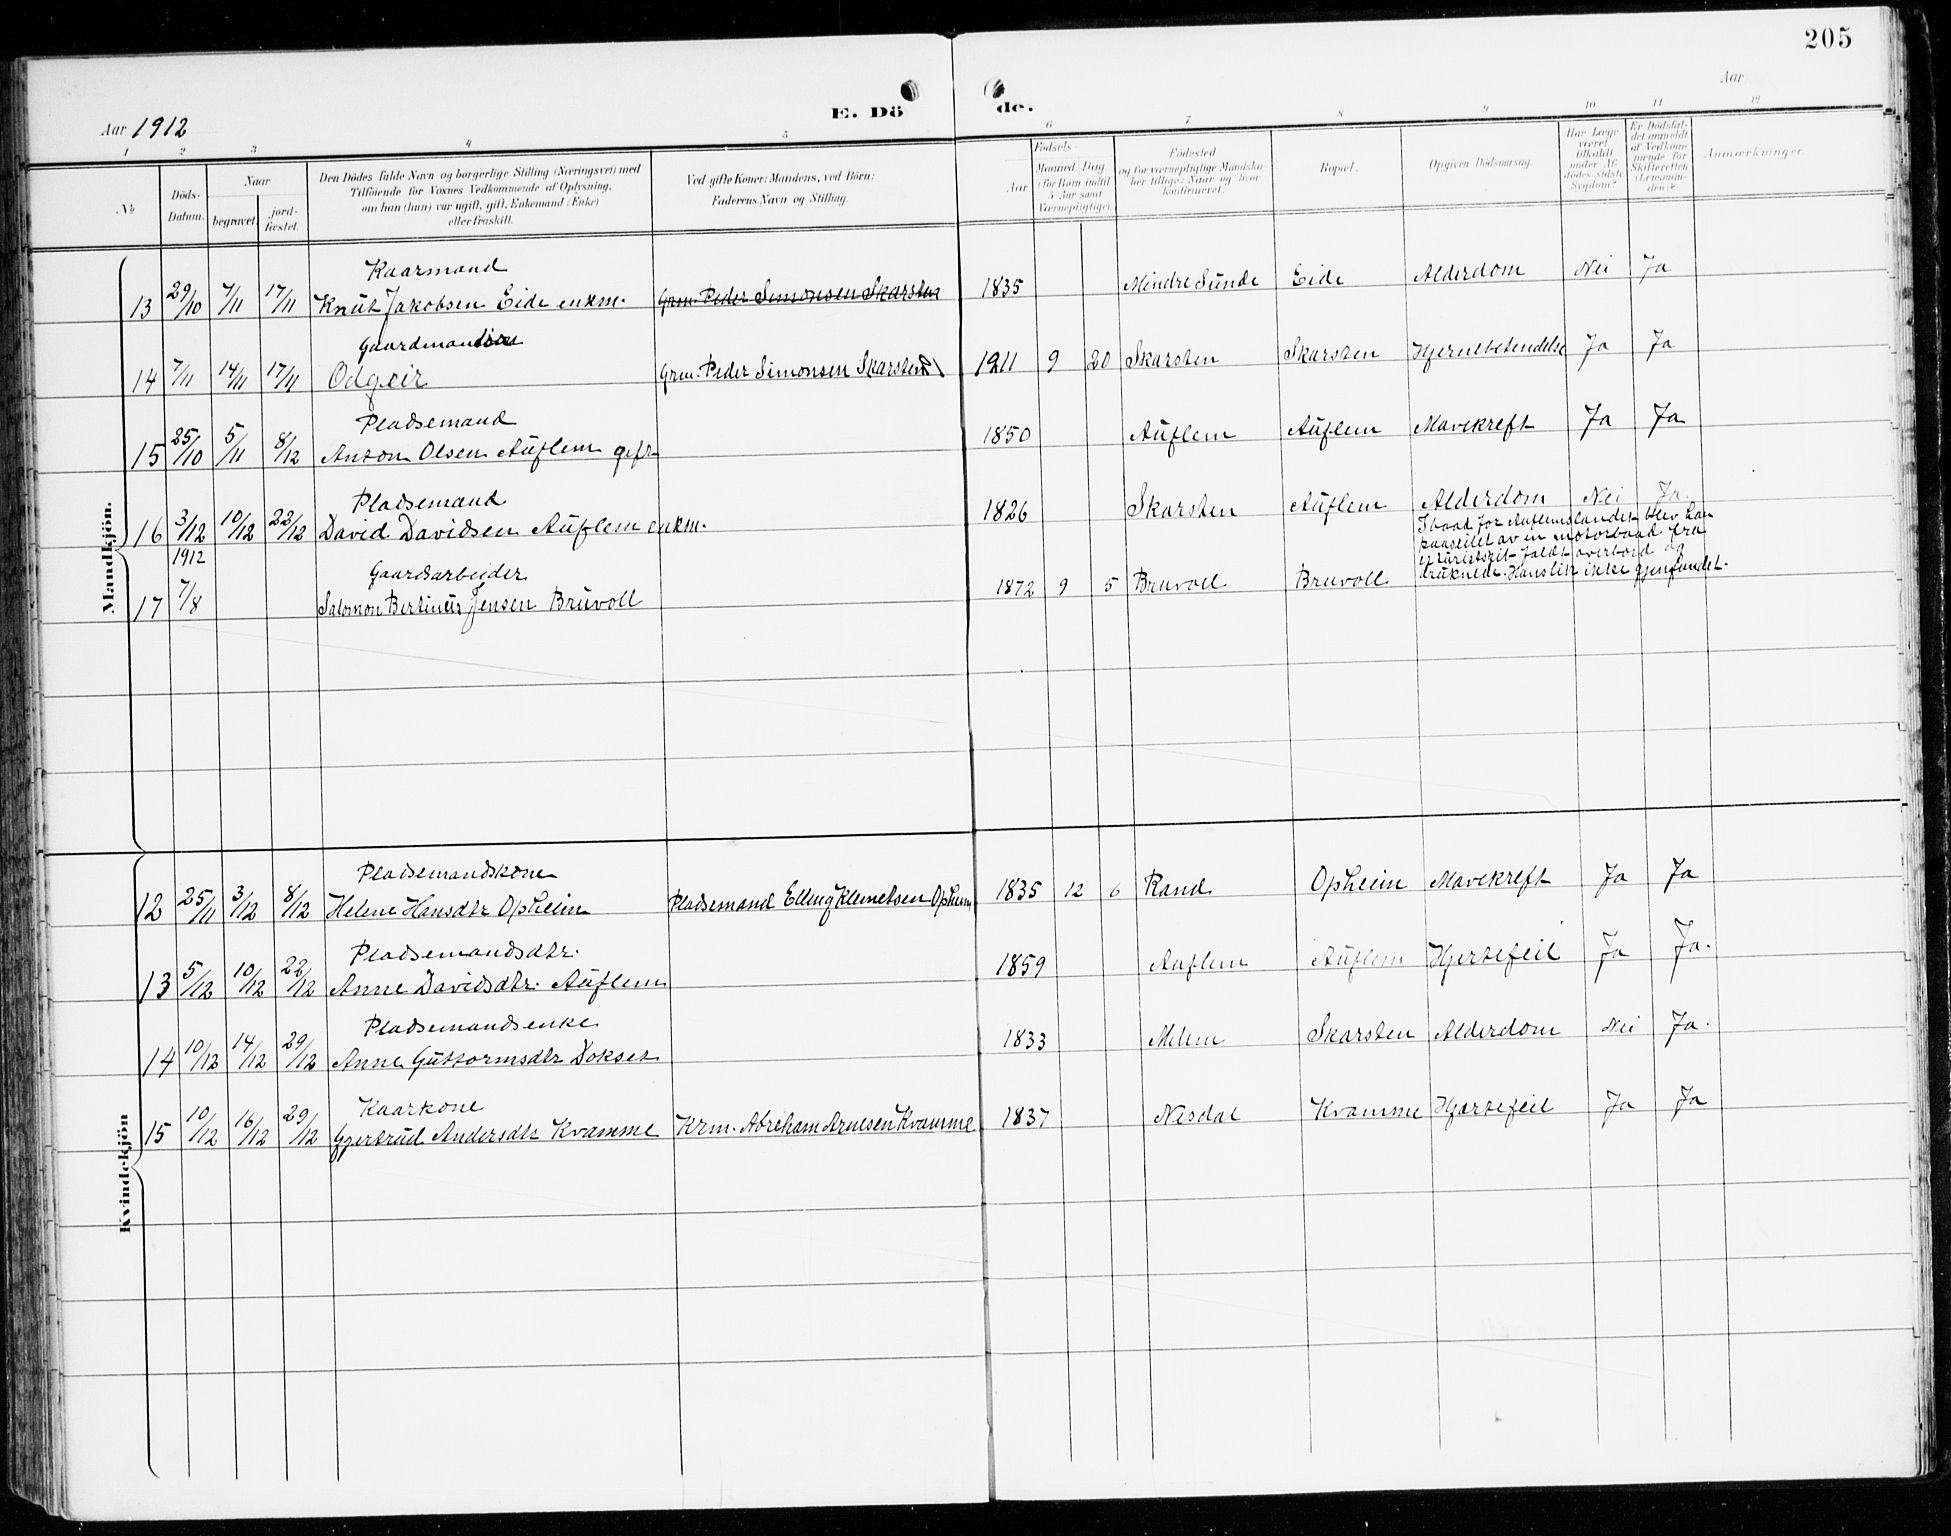 205
Aar 1912
E. Dö de.
Aar
1 2 3 4 5 6 7 8 9 10 11 12
No
Döds-Datum.
Naar
begravet.
jord-fæstet.
Den Dödes fulde Navn og borgerlige Stilling (Næringsvei) med
Tilföiende for Voxnes Vedkommende af Oplysning,
om han (hun) var ugift, gift, Enkemand (Enke)
eller fraskilt.
Ved gifte Koner: Mandens, ved Börn:
Faderens Navn og Stilling.
Födsels-
Aar
Maaned Dag
(for Börn indtil
5 Aar samt
Værnepligtige).
Födested
og for værnepligtige Mandska-
ber tillige: Naar og hvor
konfirmeret.
Bopæl.
Opgiven Dödsaarsag.
Har Læge
været
tilkaldt
under Af-
dödes sidste
Sygdom?
Er Dödsfal-
det anmeldt
af Vedkom-
mende for
Skifteretten
(Lensman-
den)?
Anmærkninger.
Mandkjön.
Kaarmand
13 29/10 7/11 17/11 Knut Jakobsen Eide enkm. Grm. Peder Simonsen Skarsten 1835 Mindre Sunde Eide Alderdom Nei Ja
14 7/11 14/11 17/11 Odgeir Grm. Peder Simonsen Skarsten 1911 9 20 Skarsten Skarsten Hjernebetendelse Ja Ja
Pladsemand
15 25/10 5/11 8/12 Anton Olsen Auflem gift 1850 Auflem Auflem Mavekreft Ja Ja
Pladsemand
16 3/12 10/12 22/12 David Davidsen Auflem enkm. 1826 Skarsten Auflem Alderdom Nei Ja.
1912
Gaardsarbeider
17 7/8 Salomon Bertinius Jensen Bruvoll 1872 9 5 Bruvoll Bruvoll
I baad for Auflemslandet blev han
paaseilet av en motorbaad fra
et turistskib, faldt overbord og
druknede. Hans lik ikke gjenfundet.
Kvindekjön
Pladsemandskone
12 25/11 3/12 8/12 Helene Hansdtr Opheim Pladsemand Elling Klemetsen Opheim 1835 12 6 Rand Opheim Mavekreft Ja Ja
Pladsemandsdtr.
13 5/12 10/12 22/12 Anne Davidsdtr. Auflem 1859 Auflem Auflem Hjertefeil Ja Ja.
Pladsemandsenke
14 10/12 14/12 29/12 Anne Guttormsdtr Dokset 1833 Melem Skarsten Alderdom Nei Ja.
Kaarkone
15 10/12 16/12 29/12 Gjertrud Andersdtr Kvamme Krm. Abraham Arnesen Kvamme 1837 Nesdal Kvamme Hjertefeil Ja Ja